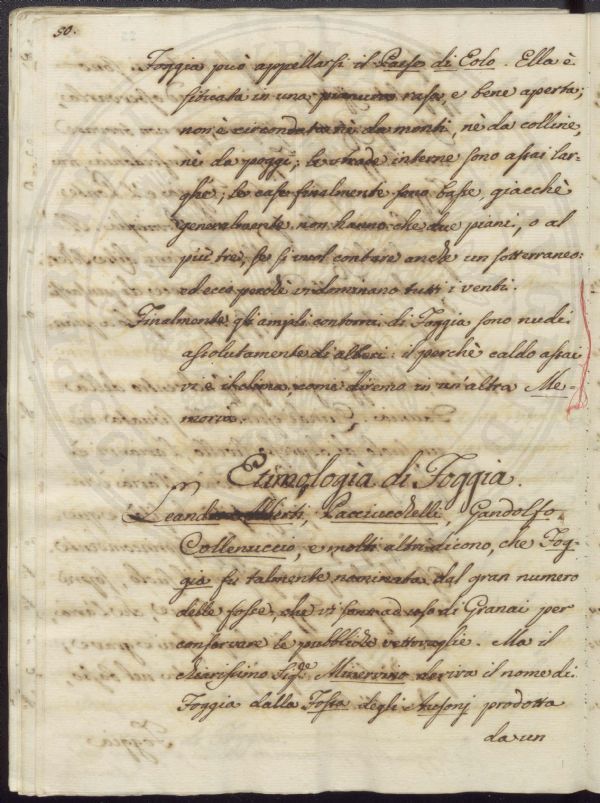 50.
Foggia può appellarsi il Paese di Eolo. Ella è
situata in una pianura rasa, e bene aperta;
non è circondata nè da monti, nè da colline,
nè da poggi; le strade interne sono assai lar-
ghe; le case finalmente sono basse giacchè
generalmente non hanno che due piani, o al
più tre, se si vuol contare anche un sotterraneo:
ed ecco perchè vi dominano tutti i venti.
Finalmente gli ampli contorni di Foggia sono nudi
assolutamente di alberi: il perchè caldo assai
vi è il clima, come diremo in un'altra Me-
moria.
Etimologia di Foggia.
Leandro Alberti, Pacciucchelli, Gandolfo,
Collenuccio, e molti altri dicono, che Fog-
gia fu talmente nominata dal gran numero
delle fosse, che vi sono ad uso di Granai per
conservare le pubbliche vettovaglie. Ma il
chiarissimo Sig.re Minervino deriva il nome di
Foggia dalla Fossa degli Ausonj prodotta
da un